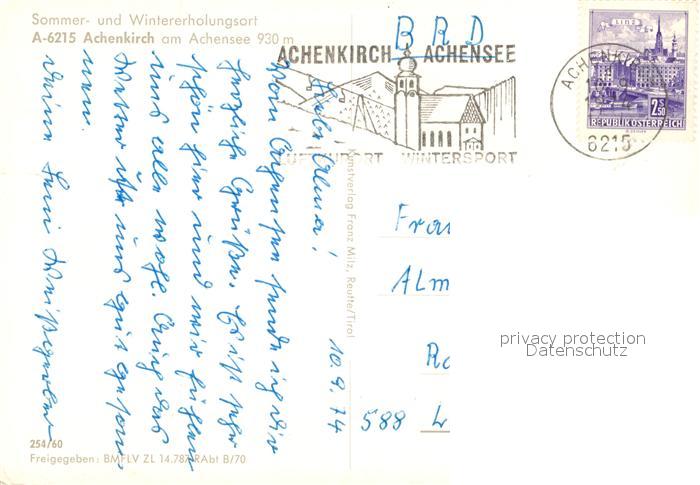 Sommer- und Wintererholungsort
A-6215 Achenkirch am Achensee 930 m
BRD
ACHENKIRCH ACHENSEE
LUFTKURORT WINTERSPORT
LINZ
2.50 S
REPUBLIK ÖSTERREICH
ACHENKIR
6215
10.9.74
Liebe Alma!
Vom Achensee sende ich Dir
herzliche Grüße. Es ist sehr
schön hier und wir fühlen
uns alle wohl. Auch das
Wetter ist uns gut geson
nen.
Deine
Kunstverlag Franz Milz, Reutte/Tirol
Frau
Alm
588 L
privacy protection
Datenschutz
254/60
Freigegeben: BMFLV ZL 14.787 RAbt B/70